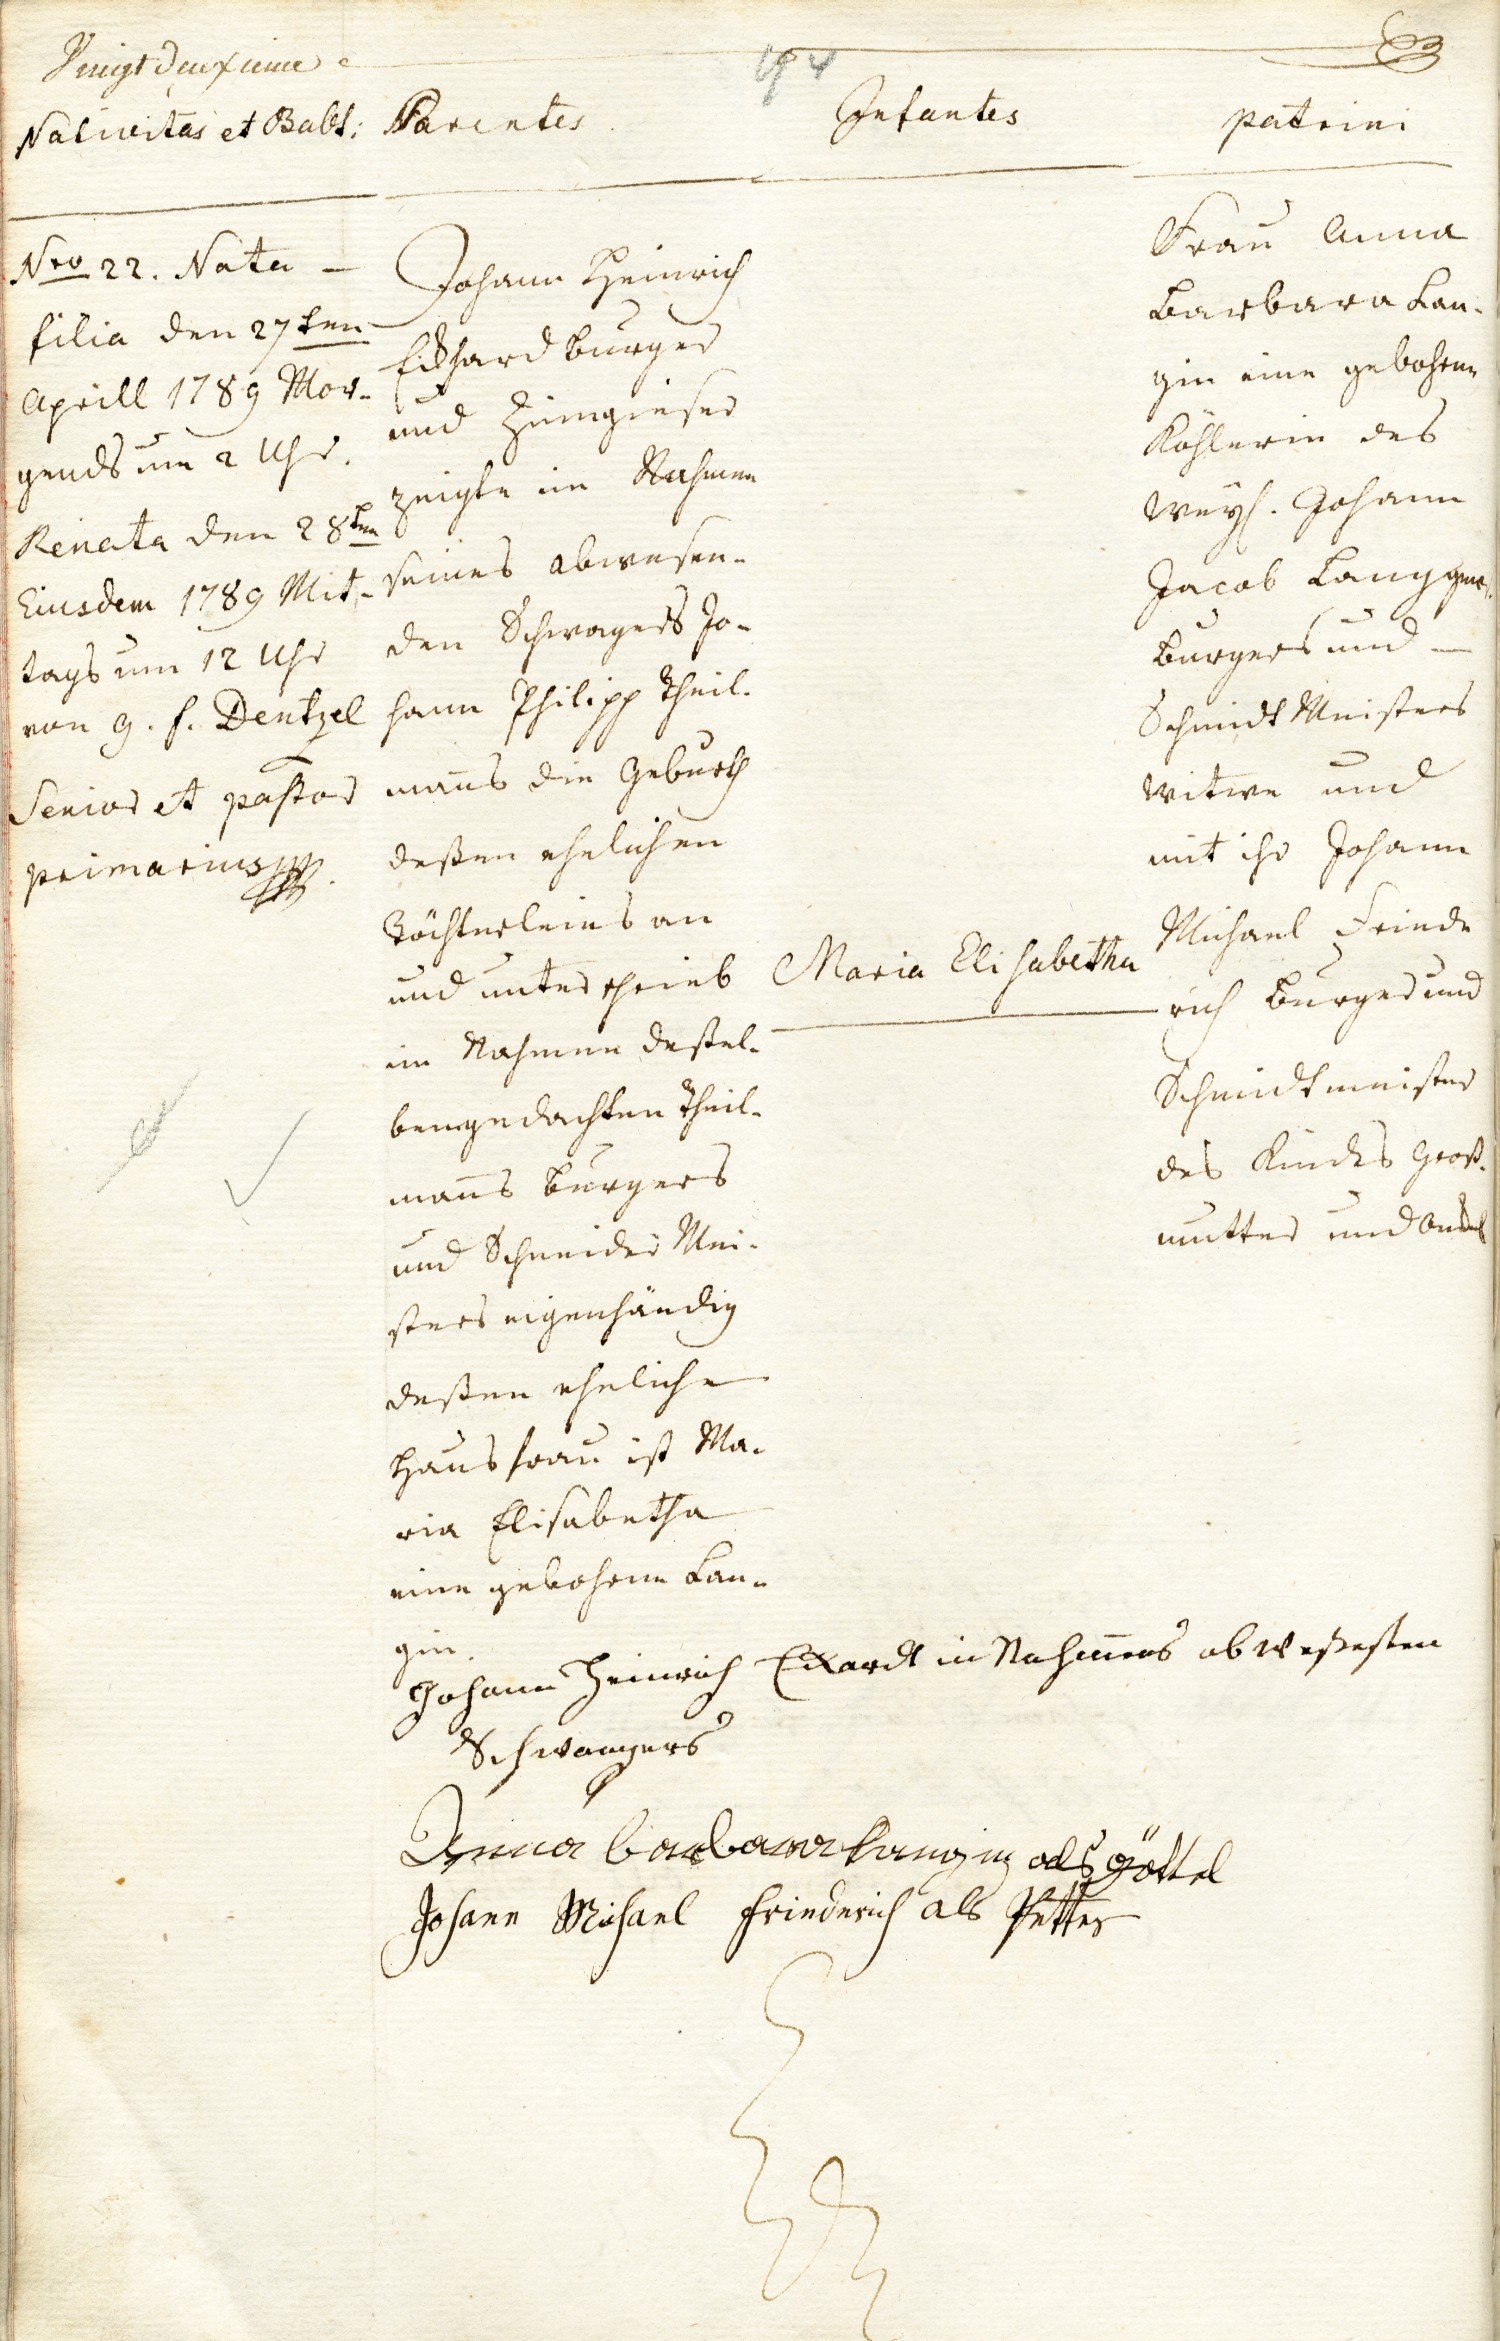 Vingt deuxieme
Nativitas et Babt: Parentes Infantes patrini
Nro 22. Nata —
filia den 27ten
Aprill 1789 Mor-
gends um 2 Uhr.
Renata den 28ten
Eiusdem 1789 Mit-
tags um 12 Uhr
von g. f. Dentzel
Senior et pastor
primarius
Johann Heinrich
Eckhard burger
und Zinngieser
zeigte im Nahmen
seines abwesen-
den Schwagers Jo-
hann Philipp Theil-
manns die Geburth
deßen ehelichen
Töchterleins an
und unterschrieb
im Nahmen deßel-
bengedachten Theil-
manns burgers
und Schneider Mei-
sters eigenhändig
deßen eheliche
Hausfrau ist Ma-
ria Elisabetha
eine gebohrne Lan-
gin.
Maria Elisabetha
Frau Anna
Barbara Lan-
gin eine gebohrne
Köhlerin des
weyl. Johann
Jacob Lang gewes.
burgers und —
Schmidt Meisters
Witwe und
mit ihr Johann
Michael Friede
rich burger und
Schmidtmeister
des Kindes Groß-
mutter und Onckel
Johann Heinrich Eckardt in Nahmens abweßesten
Schwangers
Anna barbara Langin als göttel
Johann Michael Friederich als Petter